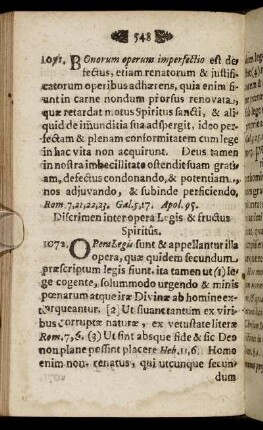 548
1071. BOnorum operum imperfectio est de-
fectus, etiam renatorum & justifi-
catorum operibus adhærens, quia enim fi-
unt in carne nondum prorsus renovata,
quæ retardat motus Spiritus sancti, & ali-
quid de imunditia sua adspergit, ideo per-
fectam & plenam conformitatem cum lege
in hac vita non acquirunt. Deus tamen
in nostra imbecillitate ostendit suam grati-
am, defectus condonando, & potentiam,
nos adjuvando, & subinde perficiendo,
Rom. 7, 21, 22, 23. Gal. 5, 17. Apol. 95.
Discrimen inter opera Legis & fructus
Spiritûs.
1072. OPera Legis sunt & appellantur illa
opera, quæ quidem secundum
præscriptum legis fiunt. ita tamen ut (1) le-
ge cogente, solummodo urgendo & minis
pœnarum atque iræ Divinæ ab homine ex-
torqueantur. [2] Ut fiuant tantum ex viri-
bus corruptæ naturæ, ex vetustate literæ
Rom. 7, 6. (3) Ut fint absque fide & sic Deo
non plane possint placere Heb. 11, 6. Homo
enim non renatus, qui utcunque secun-
dum